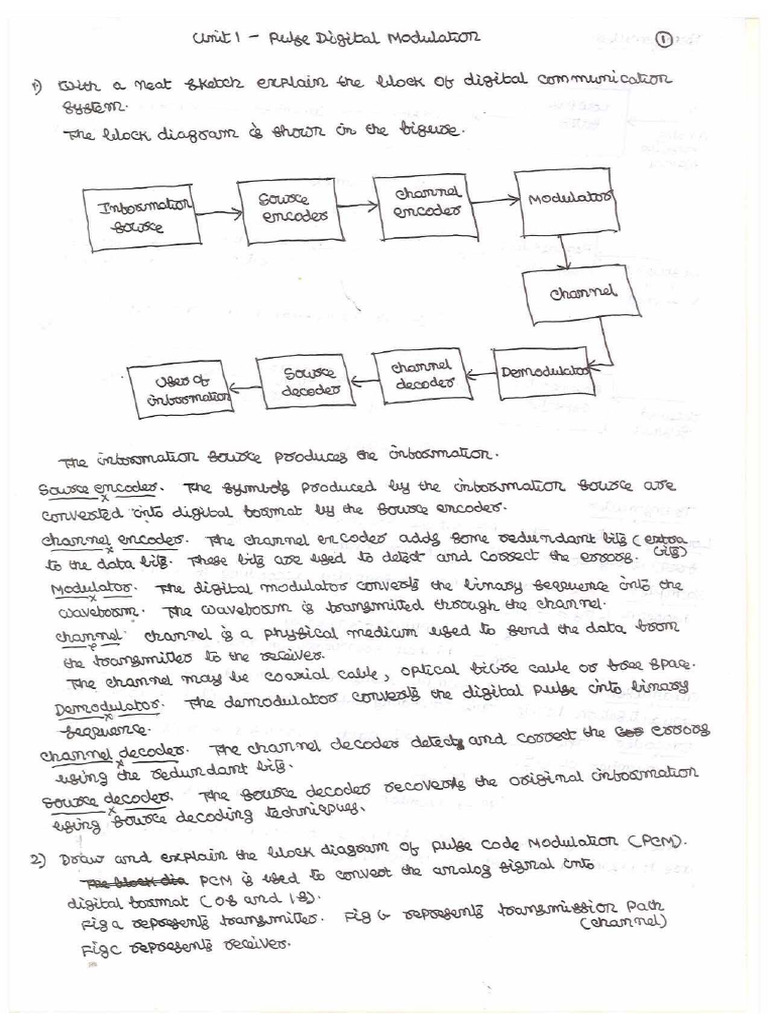 Unit 1 - Pulse Digital Modulation
1
1) With a neat sketch explain the block of digital communication
system.
The block diagram is shown in the figure.
Information
Source
Source
encoder
channel
encoder
Modulator
channel
Demodulator
channel
decoder
Source
decoder
User of
information
The information source produces the information.
Source encoder. The symbols produced by the information source are
converted into digital format by the source encoder.
channel encoder. The channel encoder adds some redundant bits (extra
to the data bits. These bits are used to detect and correct the errors. bits)
Modulator. The digital modulator converts the binary sequence into the
waveform. The waveform is transmitted through the channel.
channel: channel is a physical medium used to send the data from
the transmitter to the receiver.
The channel may be coaxial cable, optical fibre cable or free space.
Demodulator. The demodulator converts the digital pulse into binary
sequence.
channel decoder. The channel decoder detects and correct the errors
using the redundant bits.
Source decoder. The source decoder recovers the original information
using source decoding techniques.
2) Draw and explain the block diagram of Pulse Code Modulation (PCM).
The block dia PCM is used to convert the analog signal into
digital format (0s and 1s).
Fig a represents transmitter. Fig b represents transmission path
(channel)
Fig c represents receiver.